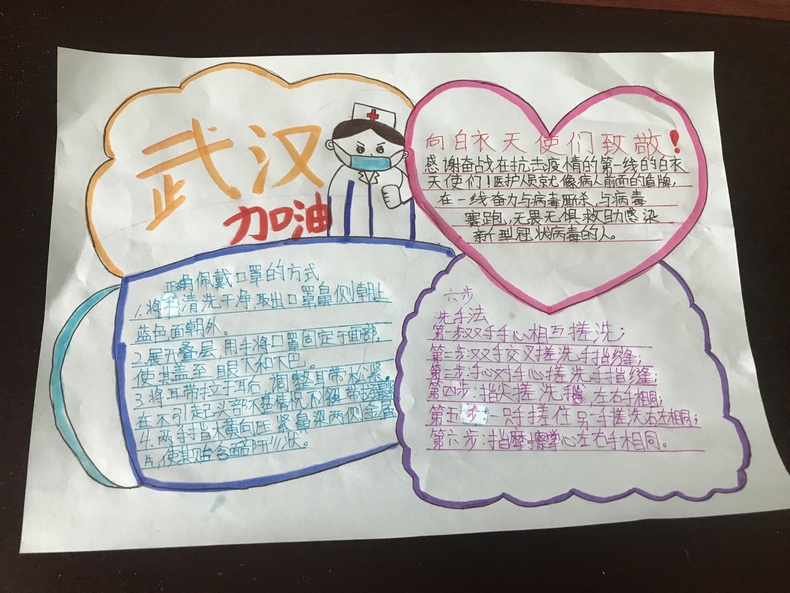 武汉
加油
向白衣天使们致敬！
感谢奋战在抗击疫情的第一线的白衣
天使们！医护人员就像病人前面的盾牌，
在一线奋力与病毒厮杀，与病毒
赛跑，无畏无惧救助感染
新型冠状病毒的人。
正确佩戴口罩的方式
1.将手清洗干净，取出口罩鼻侧朝上
蓝色面朝外。
2.展开叠层，用手将口罩固定于面部，
使其盖至眼下和下巴。
3.将耳带挂于耳后，调整耳带松紧，
在不引起头部不适情况下
4.两手指横向压紧鼻梁两侧金属
片，使其贴合
六步
洗手法
第一步：双手手心相互搓洗；
第二步：双手交叉搓洗手指缝；
第三步：手心对手心搓洗手指缝；
第四步：指尖搓洗手掌，左右手相同；
第五步：一只手搓住另一手搓洗左右相同；
第六步：指摩掌心左右手相同。